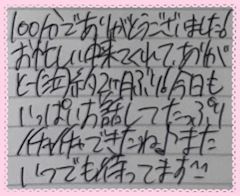 100分でありがとうございました!
お忙しい中来てくれて、ありが
と〜(泣)約2ヶ月ぶり!!今日も
いっぱいお話してたっぷり
イチャイチャできたね♪また
いつでも待ってます〜